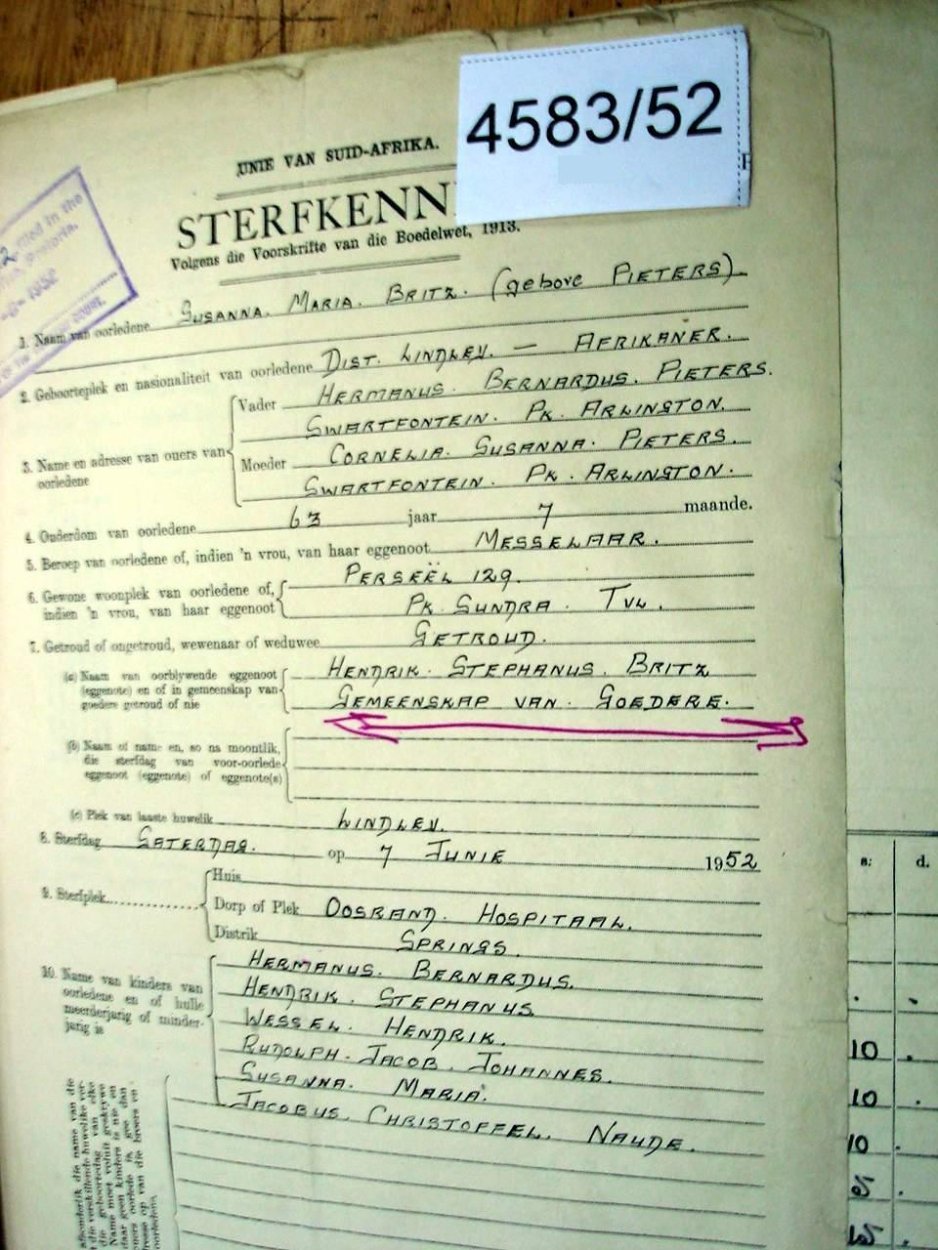 4583/52
UNIE VAN SUID-AFRIKA.
STERFKENN
Volgens die Voorskrifte van die Boedelwet, 1913.
filed in the
Pretoria.
1952
1. Naam van oorledene SUSANNA. MARIA. BRITZ. (gebore PIETERS)
2. Geboorteplek en nasionaliteit van oorledene DIST. LINDLEY. — AFRIKANER.
Vader HERMANUS. BERNARDUS. PIETERS.
SWARTFONTEIN. PK. ARLINGTON.
3. Name en adresse van ouers van oorledene
Moeder CORNELIA. SUSANNA. PIETERS.
SWARTFONTEIN. PK. ARLINGTON.
4. Ouderdom van oorledene 63 jaar 7 maande.
5. Beroep van oorledene of, indien 'n vrou, van haar eggenoot MESSELAAR.
6. Gewone woonplek van oorledene of, PERSEËL 129.
indien 'n vrou, van haar eggenoot PK. SUNDRA. TVL.
7. Getroud of ongetroud, wewenaar of weduwee GETROUD.
(a) Naam van oorblywende eggenoot HENDRIK. STEPHANUS. BRITZ
(eggenote) en of in gemeenskap van GEMEENSKAP VAN. GOEDERE.
goedere getroud of nie
(b) Naam of name en, so na moontlik,
die sterfdag van voor-oorlede
eggenoot (eggenote) of eggenote(s)
(c) Plek van laaste huwelik LINDLEY.
8. Sterfdag SATERDAG. op 7 JUNIE 1952
Huis
9. Sterfplek Dorp of Plek OOSRAND. HOSPITAAL.
Distrik SPRINGS.
10. Name van kinders van HERMANUS. BERNARDUS.
oorledene en of hulle HENDRIK. STEPHANUS
meerderjarig of minder- WESSEL. HENDRIK.
jarig is RUDOLPH. JACOB. JOHANNES.
SUSANNA. MARIA.
JACOBUS. CHRISTOFFEL. NAUDE.
s. d.
10
10
10